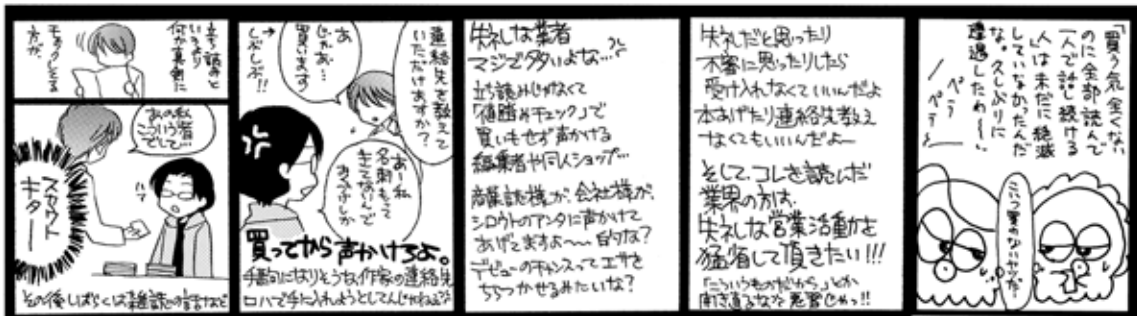 立ち読みと
いうより
何か真剣に
チェックしてる
方が。
あの私
こういう者
でして…
スカウト
キター
その後しばらくは雑誌の話など
連絡先を教えて
いただけますか?
あ
じゃあ…
買います
しぶしぶ!!
あー私
名刺もって
きてないんで
買ってから声かけろよ。
手軽に
なりそうな作家の連絡先
ロハで手に入れようとしてんじゃねぇ
失礼な業者
マジで多いよな…
立ち読みじゃなくて
「値踏みチェック」で
買いもせず声かける
編集者や同人ショップ…
商業誌様が、会社様が、
シロウトのアンタに声かけて
あげてますよ〜〜的な?
デビューのチャンスってエサを
ちらつかせるみたいな?
失礼だと思ったり
不審に思ったりしたら
受け入れなくていいんだよ
本あげたり連絡先教え
なくてもいいんだよ〜
そして、コレを読んだ
業界の方は、
失礼な営業活動を
猛省して頂きたい!!!
「こういうものだから。」とか
開き直るなな 悪習じゃっ!!
「買う気全くない
のに全部読んで
一人で話し続ける
人」は未だに絶滅
していなかったんだ
な。久しぶりに
遭遇したわ〜〜。」
ペラー
ペラー
こいつ買わないヤツだ…